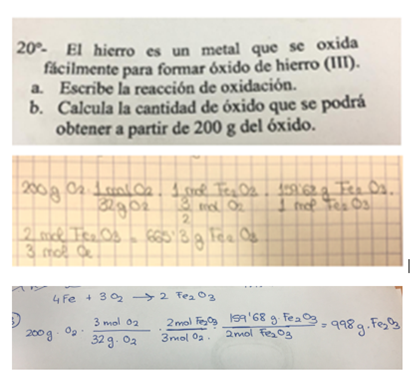 20º- El hierro es un metal que se oxida
fácilmente para formar óxido de hierro (III).
a. Escribe la reacción de oxidación.
b. Calcula la cantidad de óxido que se podrá
obtener a partir de 200 g del óxido.
200g O2 · 1 mol O2 / 32g O2 · 1 mol Fe2O3 / 3/2 mol O2 · 159'68 g Fe2O3 / 1 mol Fe2O3 ·
2 mol Fe2O3 / 3 mol O2 = 665'3 g Fe2O3
4Fe + 3O2 → 2 Fe2O3
200g · O2 · 3 mol O2 / 32g · O2 · 2mol Fe2O3 / 3mol O2 · 159'68 g · Fe2O3 / 2mol Fe2O3 = 998g · Fe2O3